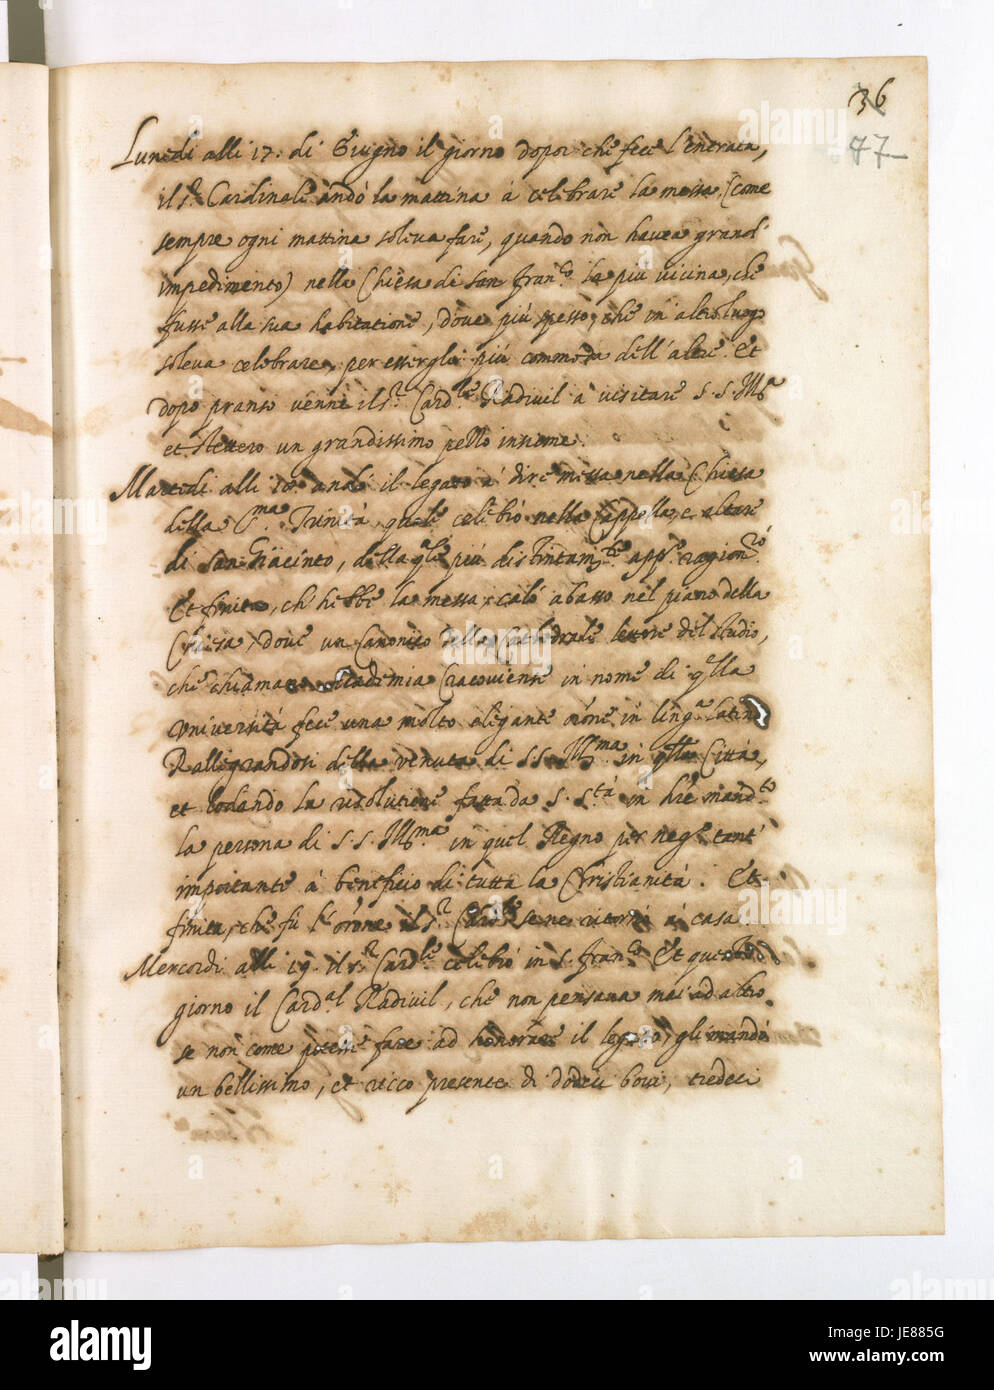 36
77
Lunedi alli 17. di Giugno il giorno dopoi che fece l'entrata,
il s.r Cardinale andò la mattina à celebrare la messa (come
sempre ogni mattina soleva fare, quando nòn havea grand'
impedimento) nella Chiesa di san Fran.co la più vicina, che
fusse alla sua habitatione, dove più spesso, che in altro luogo
soleva celebrare, per essergli più commoda dell'altre. Et
dopo pranso venne il s.r Card.le Radivil à visitare S. S. Ill.ma
et stettero un grandissimo pezzo insieme.
Martedi alli 18. andò il legato à dire messa nella Chiesa
della S.ma Trinità, quale celebrò nella Cappella, e altare
di san Giacinto, della q.le più distintam.te app.o ragion.rò
Et finita, ch' hebbe la messa, calò abasso nel piano della
Chiesa, dove un Canonico della Cathedrale lettore del studio,
che chiamano Academia Cracoviense in nome di q.lla
Università fece una molto elegante or.one in ling.a latina
Rallegrandosi della venuta di S. S. Ill.ma in q.lla Città,
et lodando la resolutione fatta da S. S.tà in hàver mand.to
la persona di S. S. Ill.ma in quel Regno per neg.o tant'
importante à beneficio di tutta la Christianità. Et
finita, che fù l'or.one il s.r Card.le se ne ritornò à casa.
Mercordi alli 19. il s.r Card.le celebrò in S. Fran.co Et questo
giorno il Card.al Radivil, che non pensava mai ad altro
se nòn come potesse fare ad honorare il legato, gli mandò
un bellissimo, et ricco presente di dodeci bovi, tredeci
alamy
JE885G
www.alamy.com